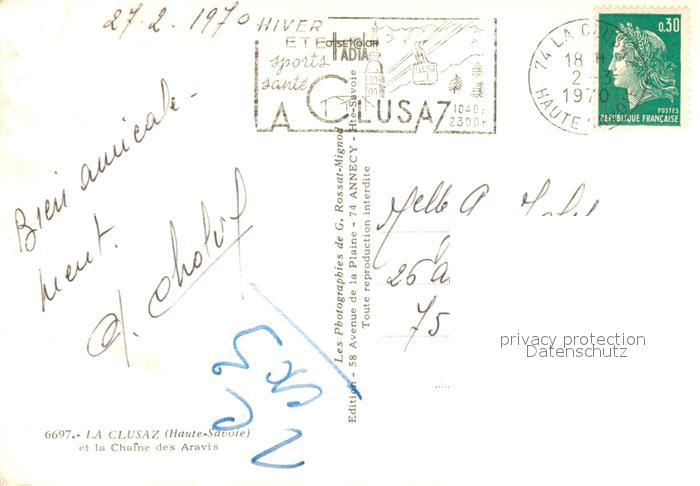 27.2.1970
HIVER
ETE
sports
santé
A LA CLUSAZ
1040
2300
74 LA CLUSAZ
18 H
2-3
1970
HAUTE SAVOIE
0,30
POSTES
REPUBLIQUE FRANÇAISE
Bien amicale-
ment.
Les Photographies de G. Rossat-Mignod
Edition - 58 Avenue de la Plaine - 74 ANNECY - Hte-Savoie
Toute reproduction interdite
Melle A
26
75
privacy protection
Datenschutz
6697.- LA CLUSAZ (Haute-Savoie)
et la Chaîne des Aravis